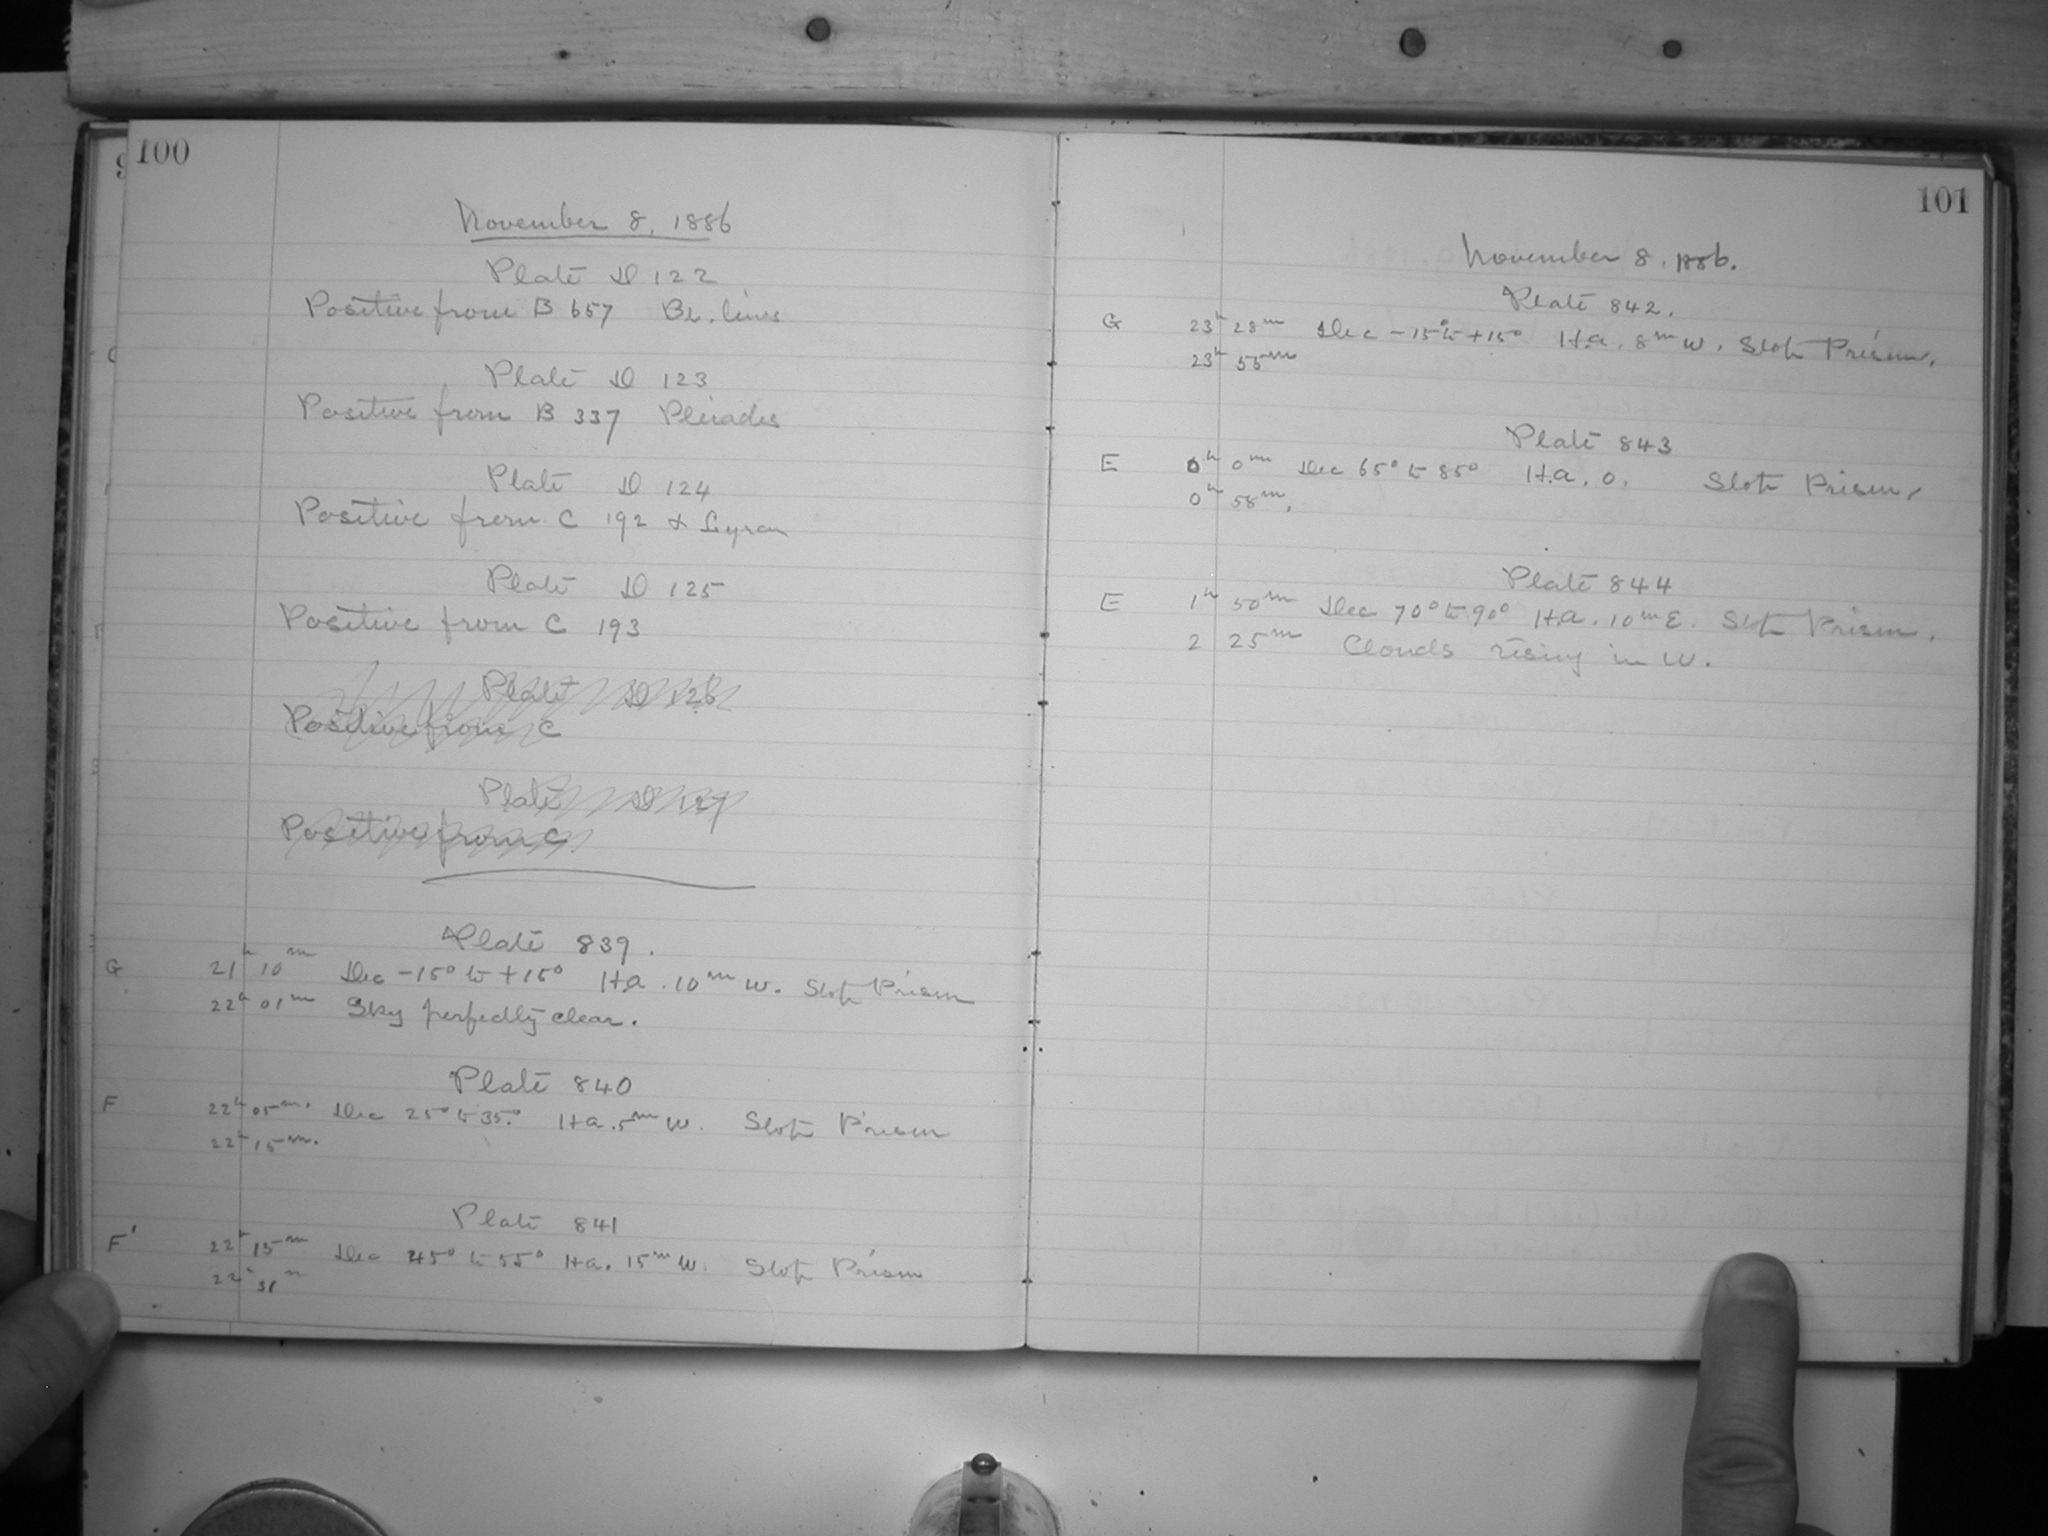 100
November 8, 1886
Plate D 122
Positive from B 657 Br. lines
Plate D 123
Positive from B 337 Pleiades
Plate D 124
Positive from C 192 α Lyrae
Plate D 125
Positive from C 193
Plate D 126
Positive from C
Plate D 127
Positive from C
Plate 839.
G 21h 10m Dec -15° to +15° H.a. 10m W. Slot Prism
22h 01m Sky perfectly clear.
Plate 840
F 22h 05m. Dec 25° to 35°. H.a. 5m W. Slot Prism
22h 15m.
Plate 841
F' 22h 15m Dec 45° to 55° H.a. 15m W. Slot Prism
22h 31m
101
November 8, 1886.
Plate 842.
G 23h 28m Dec -15° to +15° H.a. 8m W. Slot Prism.
23h 55m
Plate 843
E 0h 0m Dec 65° to 85° H.a. 0. Slot Prism.
0h 58m.
Plate 844
E 1h 50m Dec 70° to 90° H.a. 10m E. Slot Prism.
2 25m Clouds rising in W.